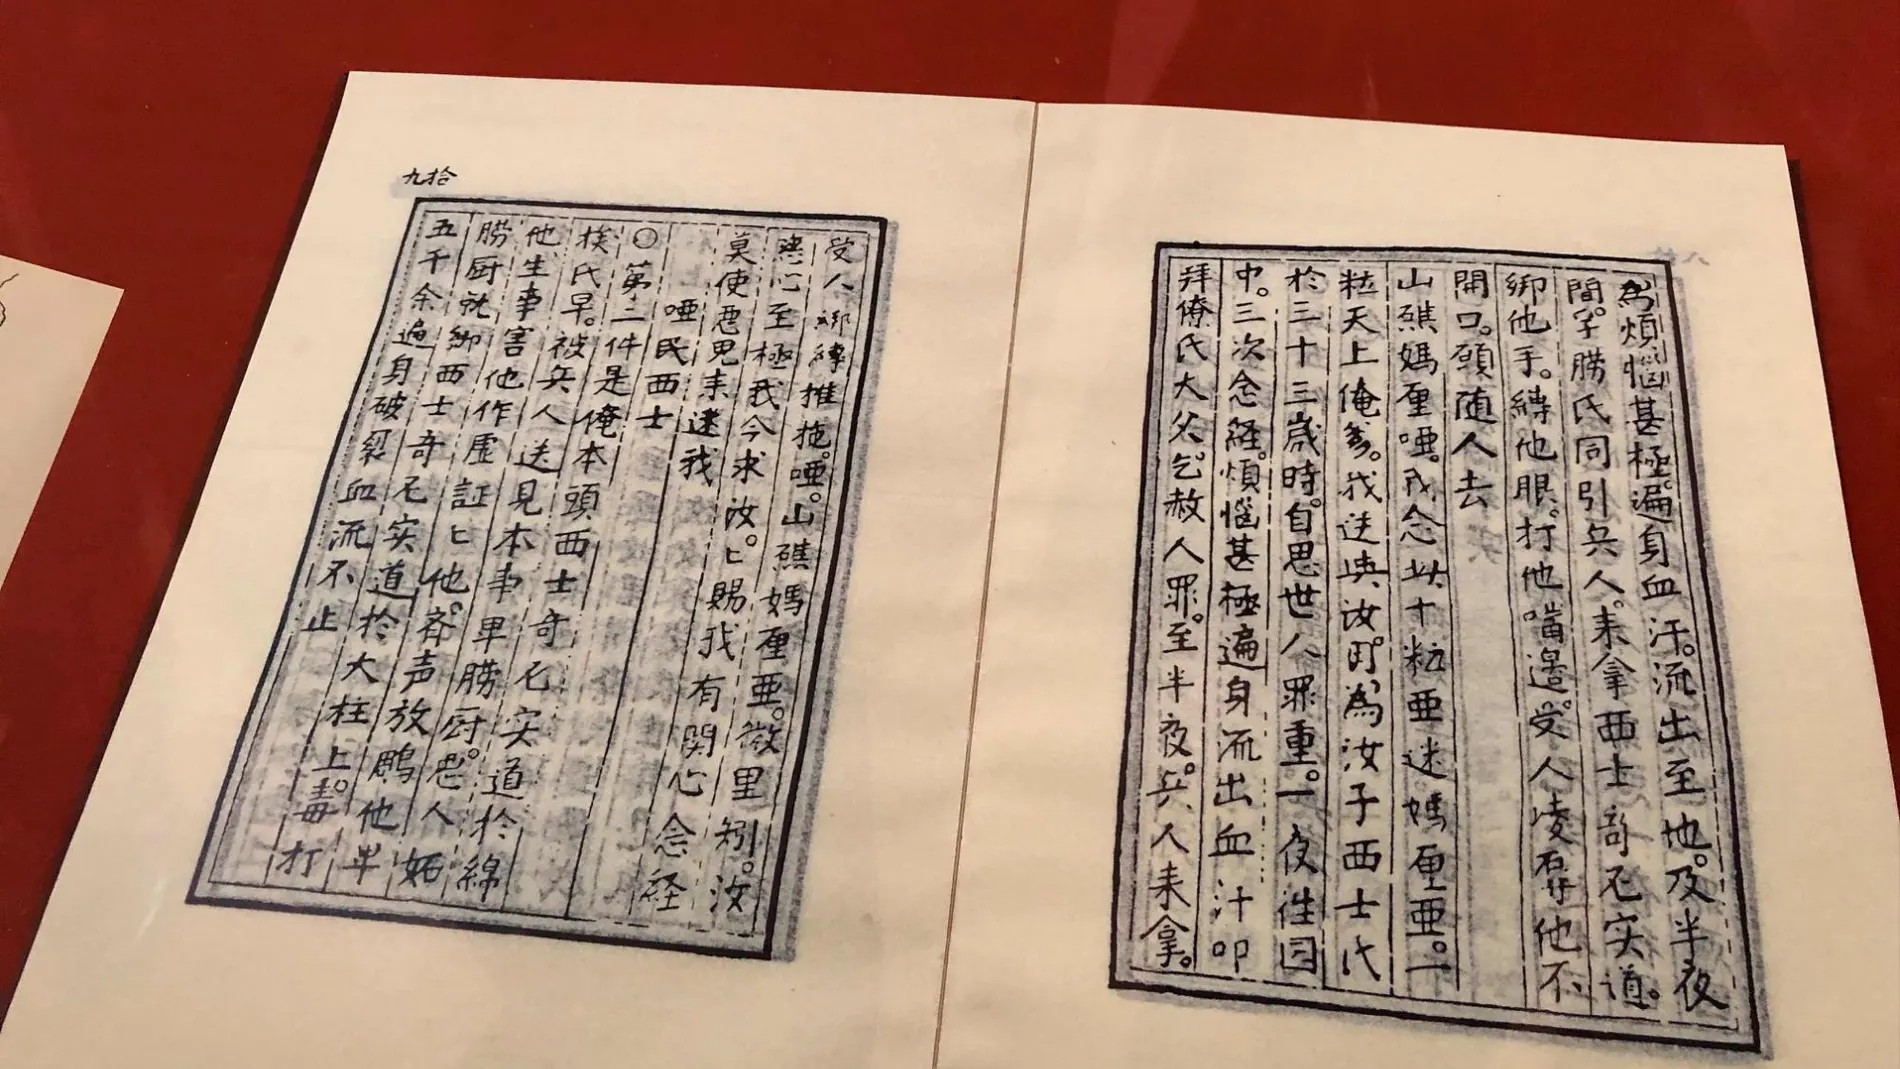 為煩惱甚極。遍身血汗。流出至地。及半夜
間。字朥氏同引兵人。来拿西士奇尼实道。
綁他手。縛他眼。打他嘴邉。受人凌辱他不
開口。願随人去
山礁媽厘啞。我念此十粒亜迷媽厘亜。一
粒天上俺爹。我送與汝。因為汝子西士氏
於三十三歳時。自思世人罪重。一夜往园
中。三次念経。煩惱甚極遍身流出血汁叩
拜僚氏大父。乞赦人罪。至半夜。兵人来拿。
九拾
受人綁縛推拖。啞。山礁媽厘亜。微里矧。汝
心至極我今求汝。匕賜我有開心念経
莫使悪鬼来迷我
啞民西士
○第二件是俺本頭西士奇尼实道於綿
挨氏早。被兵人送見本事卑朥厨。悪人妬
他、生事害他作虚証匕他。斉声放鵰他卑
朥厨就綁西士奇尼实道於大柱上。毒打
五千余遍身破裂血流不止